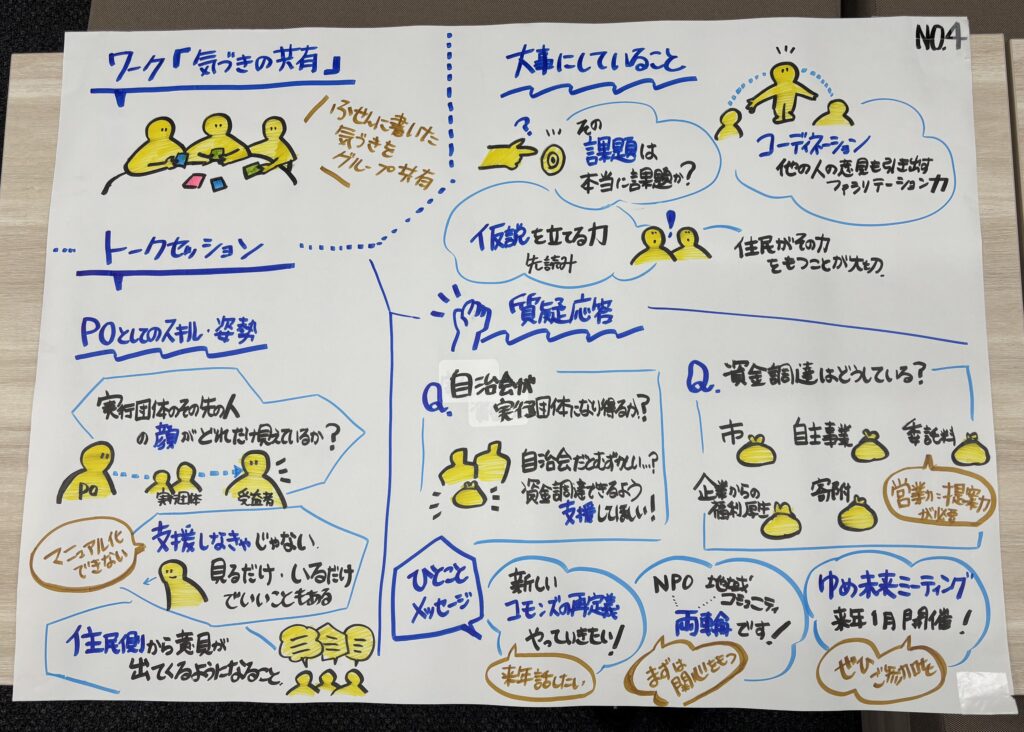 NO.4
ワーク「気づきの共有」
ふせんに書いた
気づきを
グループ共有
トークセッション
POとしてのスキル・姿勢
実行団体のその先の人
の顔がどれだけ見えているか?
PO
実行団体
受益者
マニュアル化
できない
支援しなきゃじゃない
見るだけ・いるだけ
でいいこともある
住民側から意見が
出てくるようになること
大事にしていること
?
その
課題は
本当に課題か?
コーディネーション
他の人の意見も引き出す
ファシリテーション力
仮説を立てる力
先読み
!
住民がその力
をもつことが大切
質疑応答
Q.自治会が
実行団体になり得るか?
自治会だとむずかしい…?
資金調達できるよう
支援してほしい!
Q.資金調達はどうしている?
市
自主事業
委託料
企業からの
福利厚生
寄附
営業力・提案力
が必要
ひとこと
メッセージ
新しい
コモンズの再定義
やっていきたい!
来年話したい
NPO
地域
コミュニティ
両輪です!
まずは
関心をもつ
ゆめ未来ミーティング
来年1月開催!
ぜひ
ご参加を